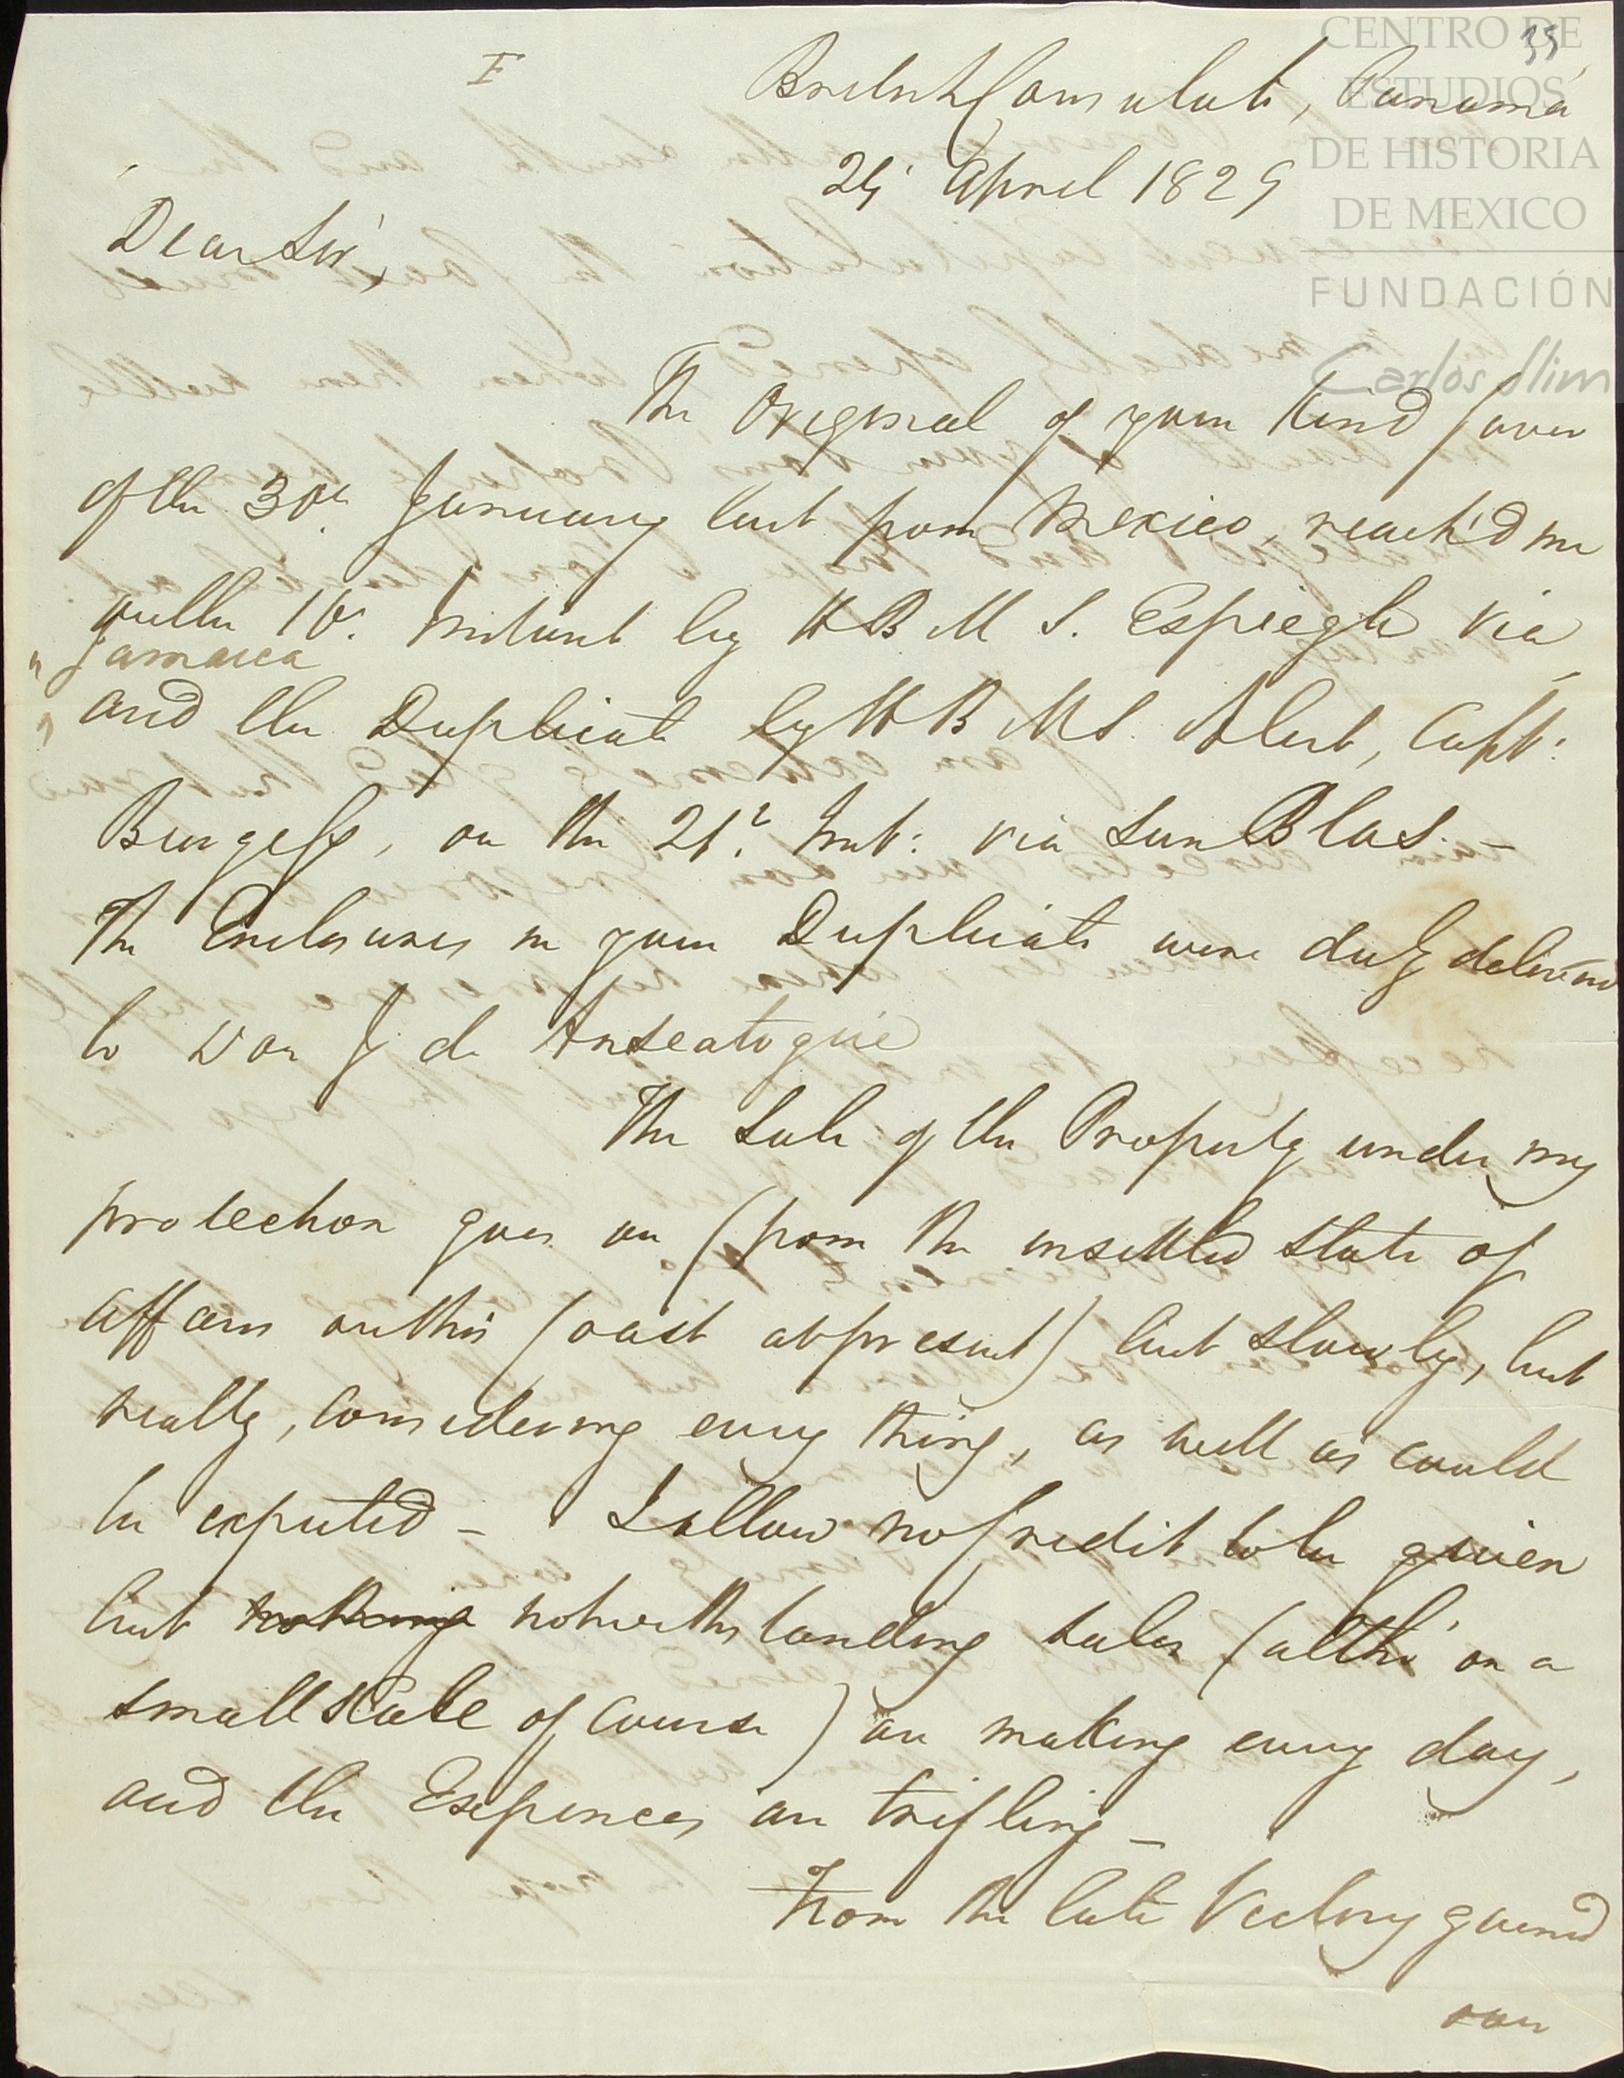 CENTRO DE
ESTUDIOS
DE HISTORIA
DE MEXICO
FUNDACIÓN
Carlos Slim
35
I
British Consulate, Panamá
24 April 1829
Dear Sir,
The Original of your kind favor
of the 30th January last from Mexico, reach'd me
on the 10. Instant by HBMS. Espiegle via
" Jamaica
and the Duplicate by HBMS. Alert, Capt:
Burgess, on the 21st Inst: via San Blas. –
The Enclosures in your Duplicate were duly deliver'd
to Don J de Anseatogüie
The Sale of the Property under my
protection goes on (from the unsettled state of
affairs on this Coast at present) but slowly, but
really, considering every thing, as well as could
be expected – I allow no Credit to be given
but nothing notwithstanding sales (altho' on a
small scale of course) are making every day,
and the Expences are trifling –
From the late Victory gained
over